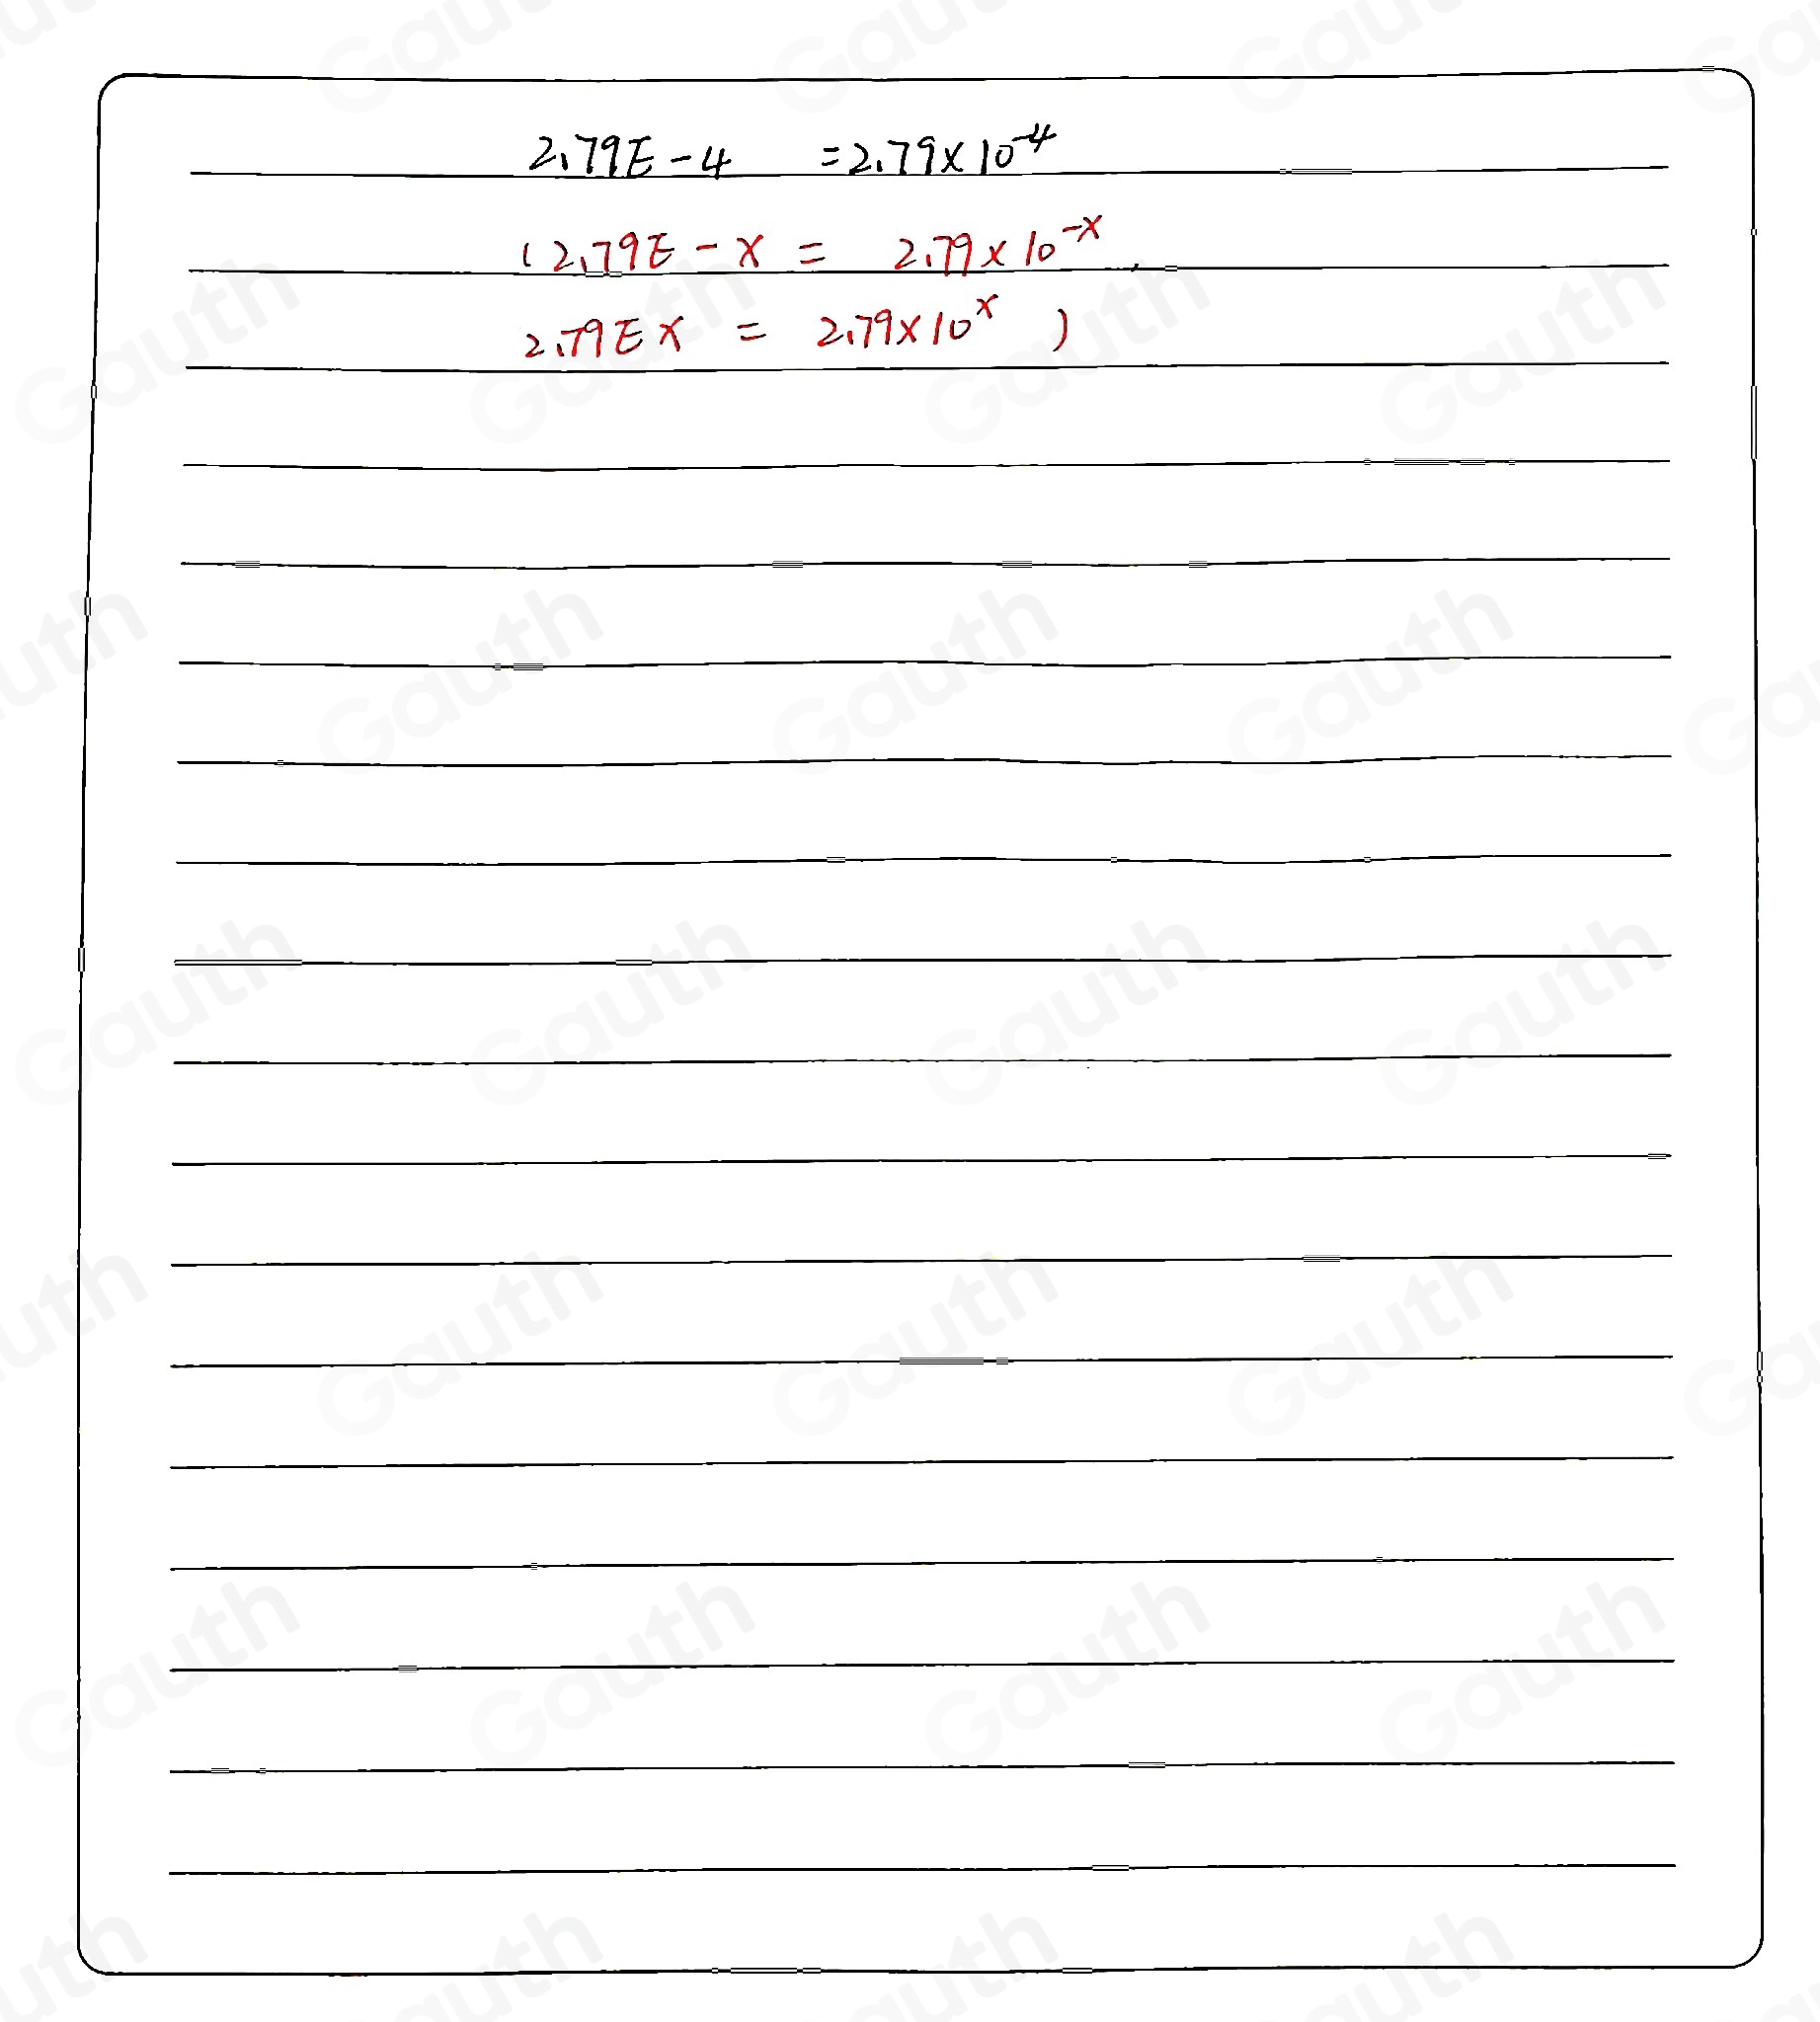 2.79E-4 = 2.79×10⁻⁴
(2.79E-x = 2.79×10⁻ˣ,
2.79Ex = 2.79×10ˣ )
Gauth